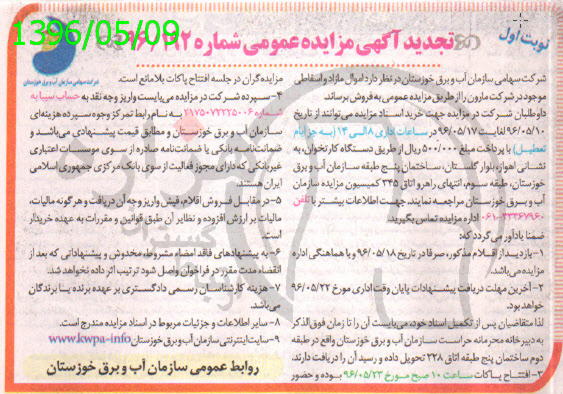 1396/05/09
نوبت اول
تجدید آگهی مزایده عمومی شماره ۹۶/۱۹۲
شرکت سهامی سازمان آب و برق خوزستان
شرکت سهامی سازمان آب و برق خوزستان در نظر دارد اموال مازاد و اسقاطی
موجود در شرکت مارون را از طریق مزایده عمومی به فروش برساند.
داوطلبان شرکت در مزایده جهت خرید اسناد مزایده می‌توانند از تاریخ
۹۶/۰۵/۱۰ لغایت ۹۶/۰۵/۱۷ در ساعات اداری ۸ الی ۱۴ (به جز ایام
تعطیل) با پرداخت مبلغ ۵۰۰/۰۰۰ ریال از طریق دستگاه کارتخوان، به
نشانی اهواز، بلوار گلستان، ساختمان پنج طبقه سازمان آب و برق
خوزستان، طبقه سوم، انتهای راهرو اتاق ۳۴۵ کمیسیون مزایده سازمان
آب و برق خوزستان مراجعه نمایند. جهت اطلاعات بیشتر با تلفن
۰۶۱-۳۳۳۶۷۹۶۰ اداره مزایده تماس بگیرید.
ضمنا یادآور می‌گردد که:
۱- بازدید از اقلام مذکور، صرفا در تاریخ ۹۶/۰۵/۱۸ و با هماهنگی اداره
مزایده می‌باشد.
۲- آخرین مهلت دریافت پیشنهادات پایان وقت اداری مورخ ۹۶/۰۵/۲۲
خواهد بود.
لذا متقاضیان پس از تکمیل اسناد خود، می‌بایست آن را تا زمان فوق‌الذکر
به دبیرخانه محرمانه حراست سازمان آب و برق خوزستان واقع در طبقه
دوم ساختمان پنج طبقه اتاق ۲۲۸ تحویل داده و رسید آن را دریافت دارند.
۳- افتتاح پاکات ساعت ۱۰ صبح مورخ ۹۶/۰۵/۲۳ بوده و حضور
مزایده گران در جلسه افتتاح پاکات بلامانع است.
۴- سپرده شرکت در مزایده می‌بایست واریز وجه نقد به حساب سیبا به
شماره ۲۱۷۵۰۷۲۲۲۵۰۰۶ به نام رابط تمرکز وجوه سپرده هزینه‌ای
سازمان آب و برق خوزستان و مطابق قیمت پیشنهادی می‌باشد و
ضمانت‌نامه بانکی یا ضمانت‌نامه صادره از سوی موسسات اعتباری
غیربانکی که دارای مجوز فعالیت از سوی بانک مرکزی جمهوری اسلامی
ایران هستند.
۵- در مقابل فروش اقلام، فیش واریز وجه آن دریافت و هرگونه مالیات،
مالیات بر ارزش افزوده و نظایر آن طبق قوانین و مقررات به عهده خریدار
است.
۶- به پیشنهادهای فاقد امضاء مشروط، مخدوش و پیشنهاداتی که بعد از
انقضاء مدت مقرر در فراخوان واصل شود ترتیب اثر داده نخواهد شد.
۷- هزینه کارشناسان رسمی دادگستری بر عهده برنده یا برندگان
می‌باشد.
۸- سایر اطلاعات و جزئیات مربوط در اسناد مزایده مندرج است.
۹- سایت اینترنتی سازمان آب و برق خوزستان www.kwpa-info
روابط عمومی سازمان آب و برق خوزستان